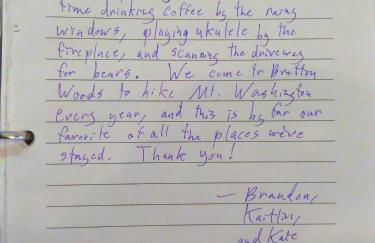 time drinking coffee by the rainy
windows, playing ukulele by the
fireplace, and scanning the driveway
for bears. We come to Bretton
Woods to hike Mt. Washington
every year, and this is by far our
favorite of all the places we've
stayed. Thank you!
— Brandon,
Kaitlin,
and Kate